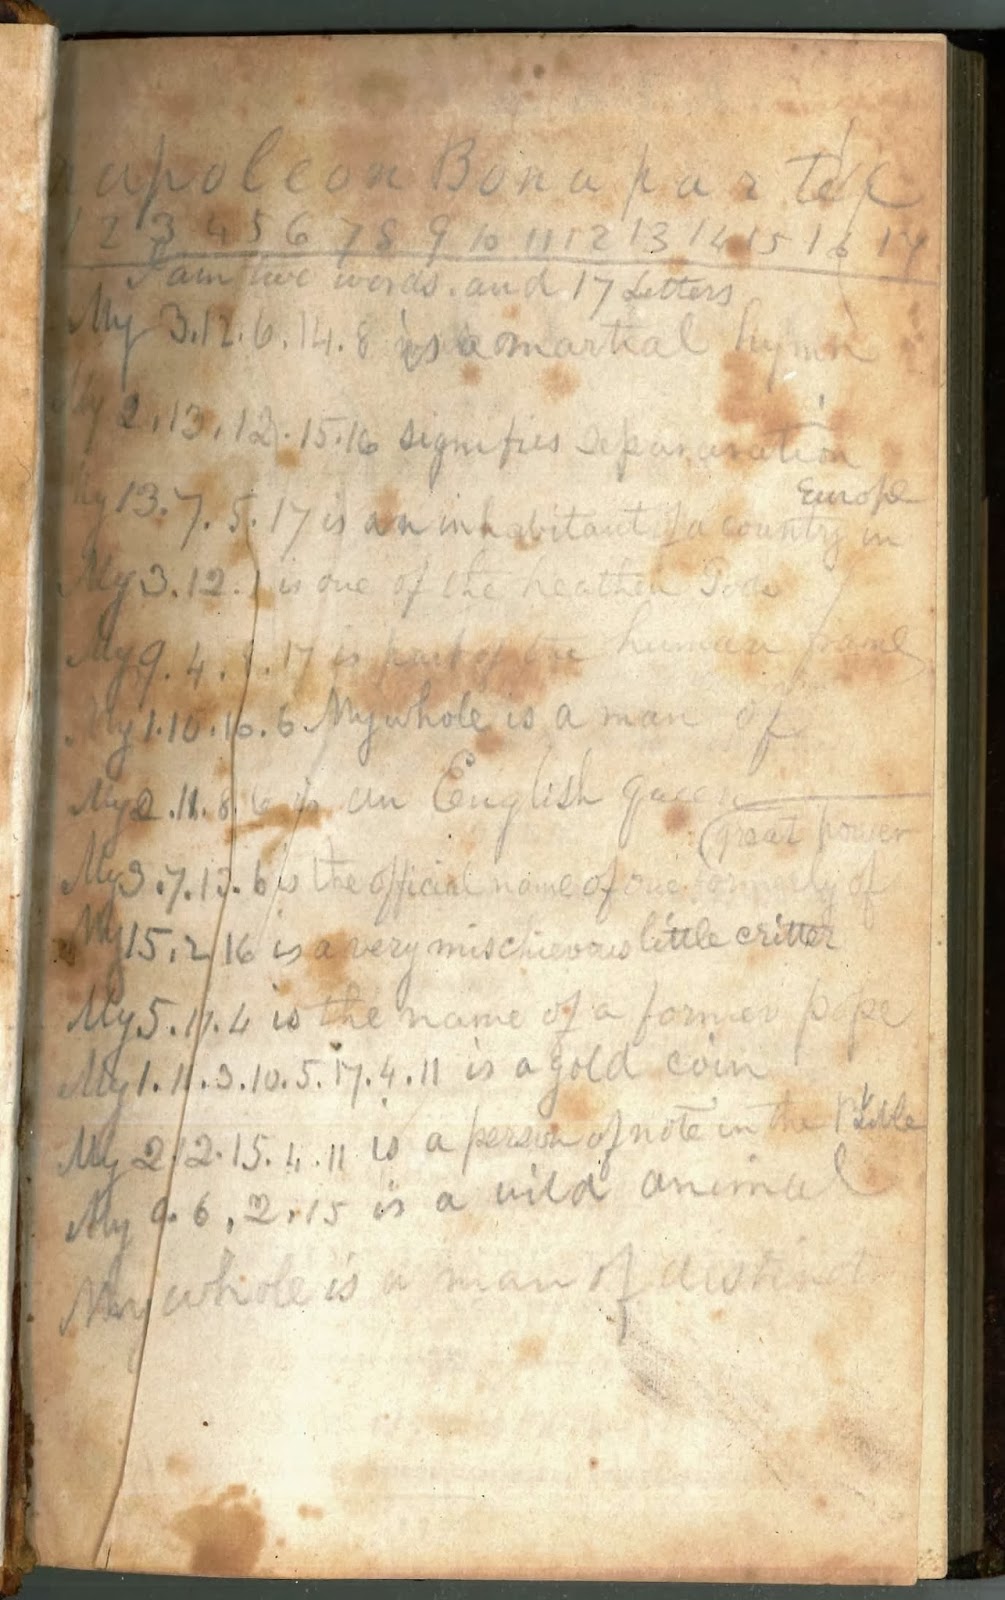 napoleon Bonaparte
1 2 3 4 5 6 7 8 9 10 11 12 13 14 15 16 17
I am two words. and 17 Letters
My 3.12.6.14.8 is a martial hymn
My 2.13.12.15.16 signifies separaration
Europe
My 13.7.5.17 is an inhabitant of a country in
My 3.12.1 is one of the heathen Gods
My 9.4.1.17 is part of the human frame
My 1.10.16.6 My whole is a man of
My 2.11.8.6 is an English queen
(great power
My 3.7.13.6 is the official name of one formerly of
My 15.2.16 is a very mischievous little critter
My 5.11.4 is the name of a former pope
My 1.11.3.10.5.17.4.11 is a gold coin
My 2.12.15.4.11 is a person of note in the Bible
My 9.6.2.15 is a wild animal
My whole is a man of distinct